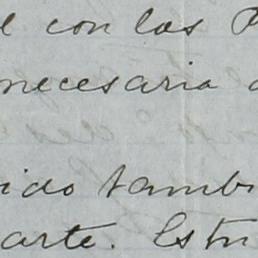 con las
necesaria
ido tambi
arte. Estu